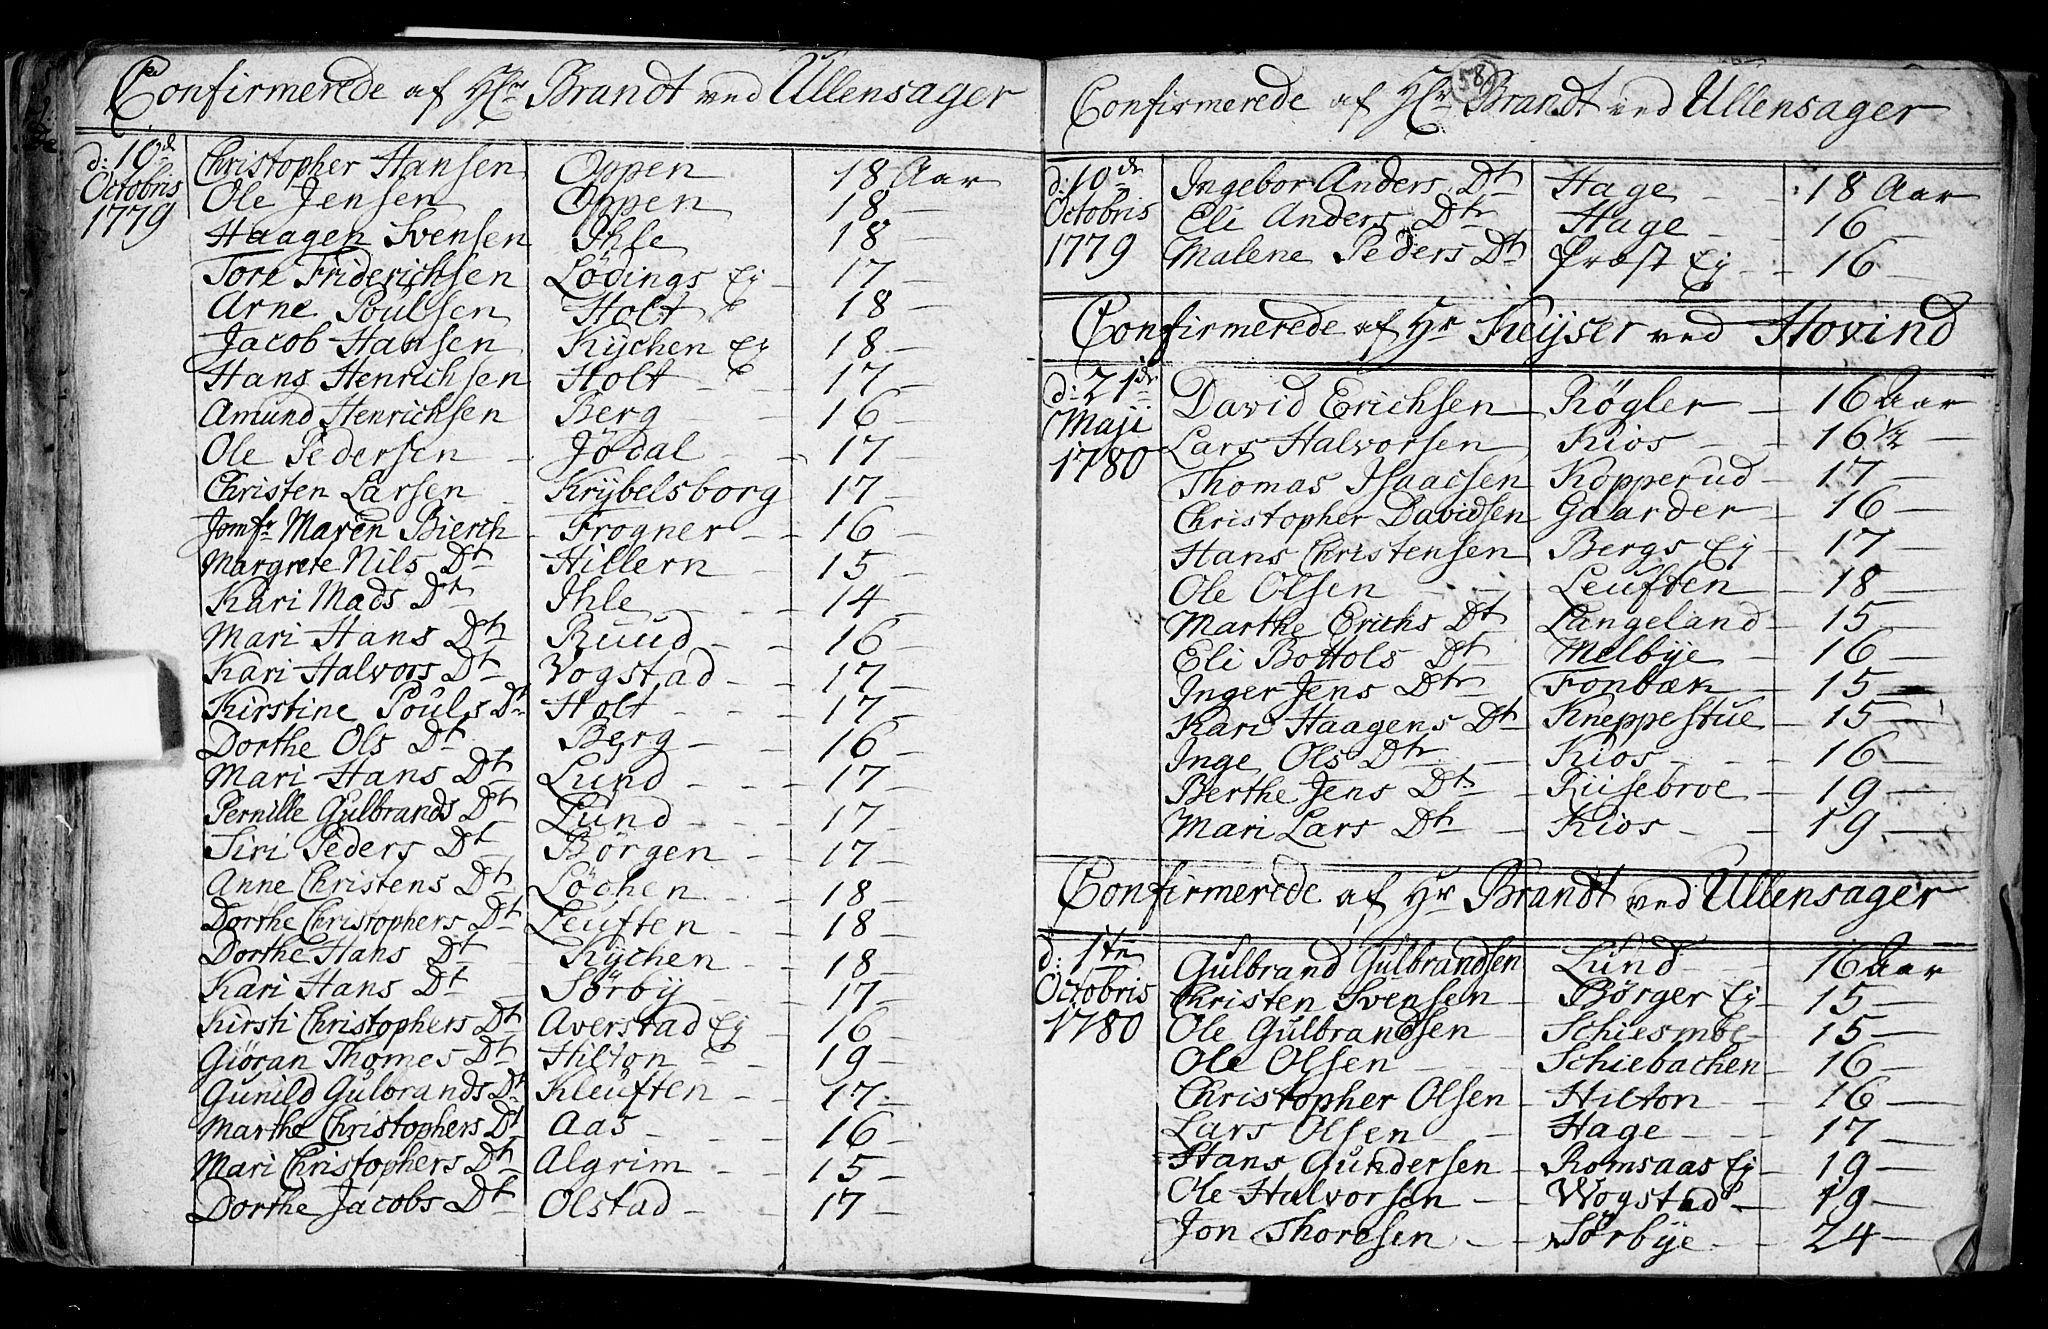 Confirmerede af Hr Brandt ved Ullensager
d: 10de Octobris 1779
Christopher Hansen Oppen 18 Aar
Ole Jensen Oppen 18 —
Haagen Svensen Ihle 18 —
Tore Friderichsen Lödings Ej — 17 —
Arne Poulsen Holt 18 —
Jacob Hansen Kÿchen Ej 18 —
Hans Henrichsen Holt — 17 —
Amund Henrichsen Berg — 16 —
Ole Pedersen — Jödal — 17 —
Christen Larsen — Krÿbelsborg 17 —
Jomfr Maren Bierch Frogner — 16 —
Margrete Nils Dtr Hillern — 15 —
Kari Mads Dtr Ihle — 14 —
Mari Hans Dtr Ruud — 16 —
Kari Halvors Dtr Vogstad — 17 —
Kirstine Pouls Dtr Holt — 17 —
Dorthe Ols Dtr Berg — 16 —
Mari Hans Dtr Lund — 17 —
Pernille Gulbrands Dtr Lund — 17 —
Siri Peders Dtr Börgen — 17 —
Anne Christens Dtr Löchen — 18 —
Dorthe Christophers Dtr Leuften — 18 —
Dorthe Hans Dtr Kÿchen — 18 —
Kari Hans Dtr Sörbÿ — 17 —
Kirsti Christophers Dtr Averstad Ej — 16 —
Giöran Thomes Dtr Hilton — 19 —
Gunild Gulbrands Dtr Kleuften — 17 —
Marthe Christophers Dtr Aas — 16 —
Mari Christophers Dtr Algrim — 15 —
Dorthe Jacobs Dtr Olstad — 17 —
58
Confirmerede af Hr Brandt ved Ullensager
d: 10de Octobris 1779
Ingebor Anders Dtr Hage — 18 Aar
Eli Anders Dtr Hage — 16 —
Malene Peders Dtr Prost Ej — 16 —
Confirmerede af Hr Keÿser ved Hovind
d: 21de Maji 1780
David Erichsen Rögler — 16 Aar
Lars Halvorsen Kios — 16 1/2 —
Thomas Isaacsen Kopperud — 17 —
Christopher Davidsen Gaarder — 16 —
Hans Christensen Bergs Ej — 17 —
Ole Olsen — Leuften — 18 —
Marthe Erichs Dtr Langeland — 15 —
Eli Bottols Dtr Melbÿe — 16 —
Inger Jens Dtr Fonbæk — 15 —
Kari Haagens Dtr Kneppestue — 15 —
Inge Ols Dtr — Kios — 16 —
Berthe Jens Dtr — Riisebroe — 19 —
Mari Lars Dtr — Kios — 19 —
Confirmerede af Hr Brandt ved Ullensager
d: 1ten Octobris 1780
Gulbrand Gulbrandsen Lund — 16 Aar
Christen Svensen — Börger Ej — 15 —
Ole Gulbrandsen — Schiesmoe — 15 —
Ole Olsen — Schiebachen — 16 —
Christopher Olsen — Hilton — 16 —
Lars Olsen — Hage — 17 —
Hans Gundersen — Romsaas Ej — 19 —
Ole Halvorsen — Wogstad — 19 —
Jon Thoresen — Sörbÿe — 24 —